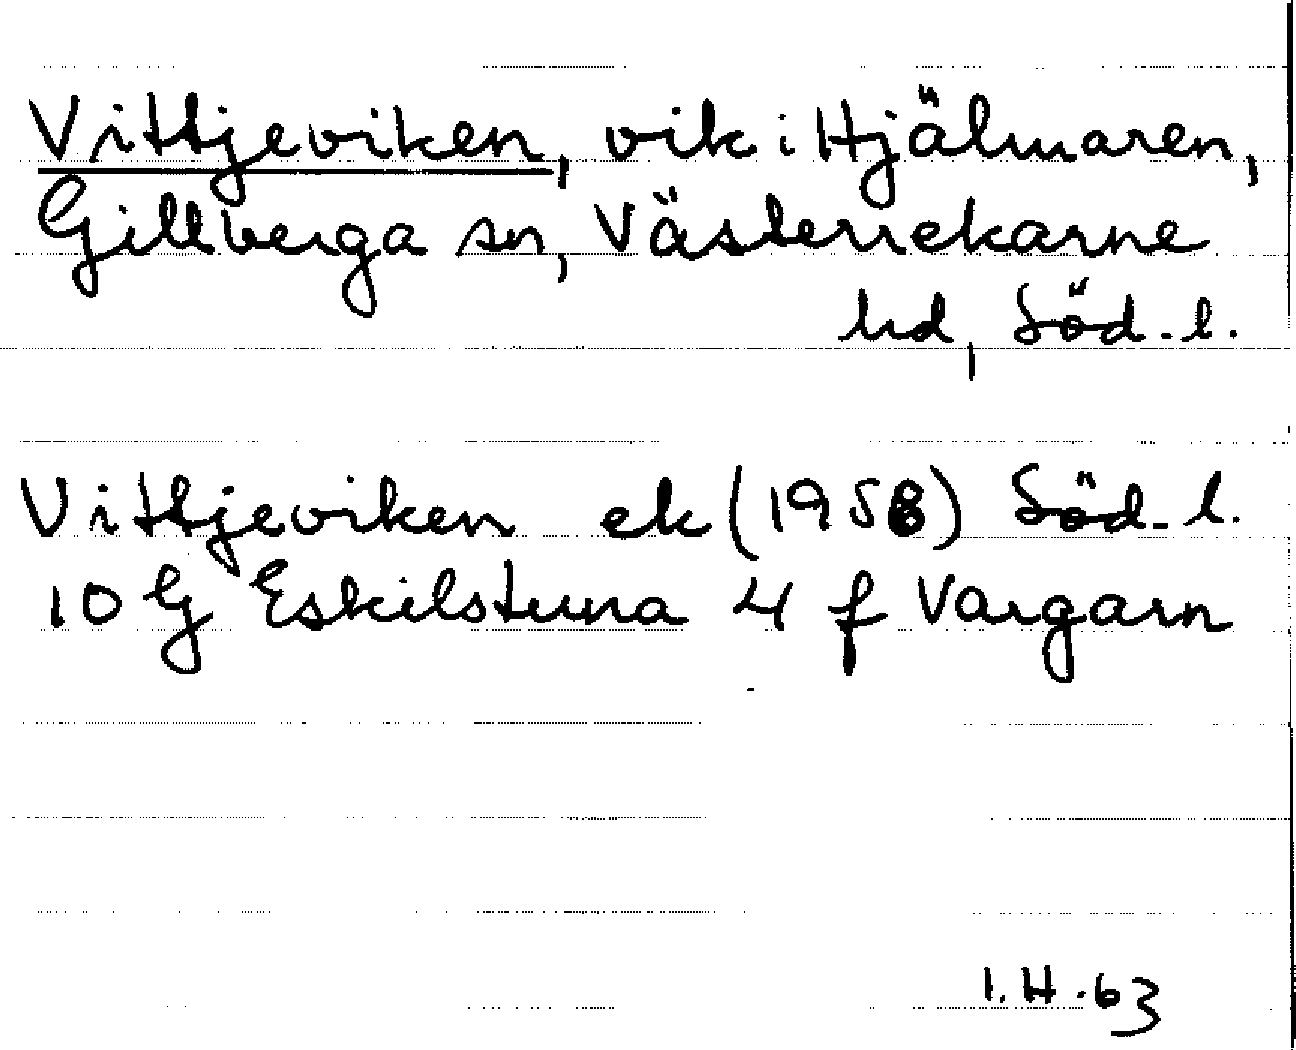 Vittjeviken, vik i Hjälmaren,
Gillberga sn, Västerrekarne
hd, Söd. l.
Vittjeviken ek (1958) Söd. l.
10 G Eskilstuna 4 f Vargarn
I. H. 63